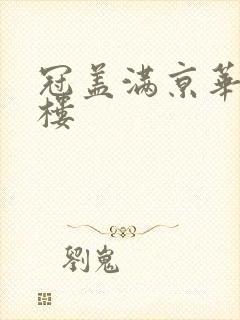 冠盖满京华
楼
劉嵬